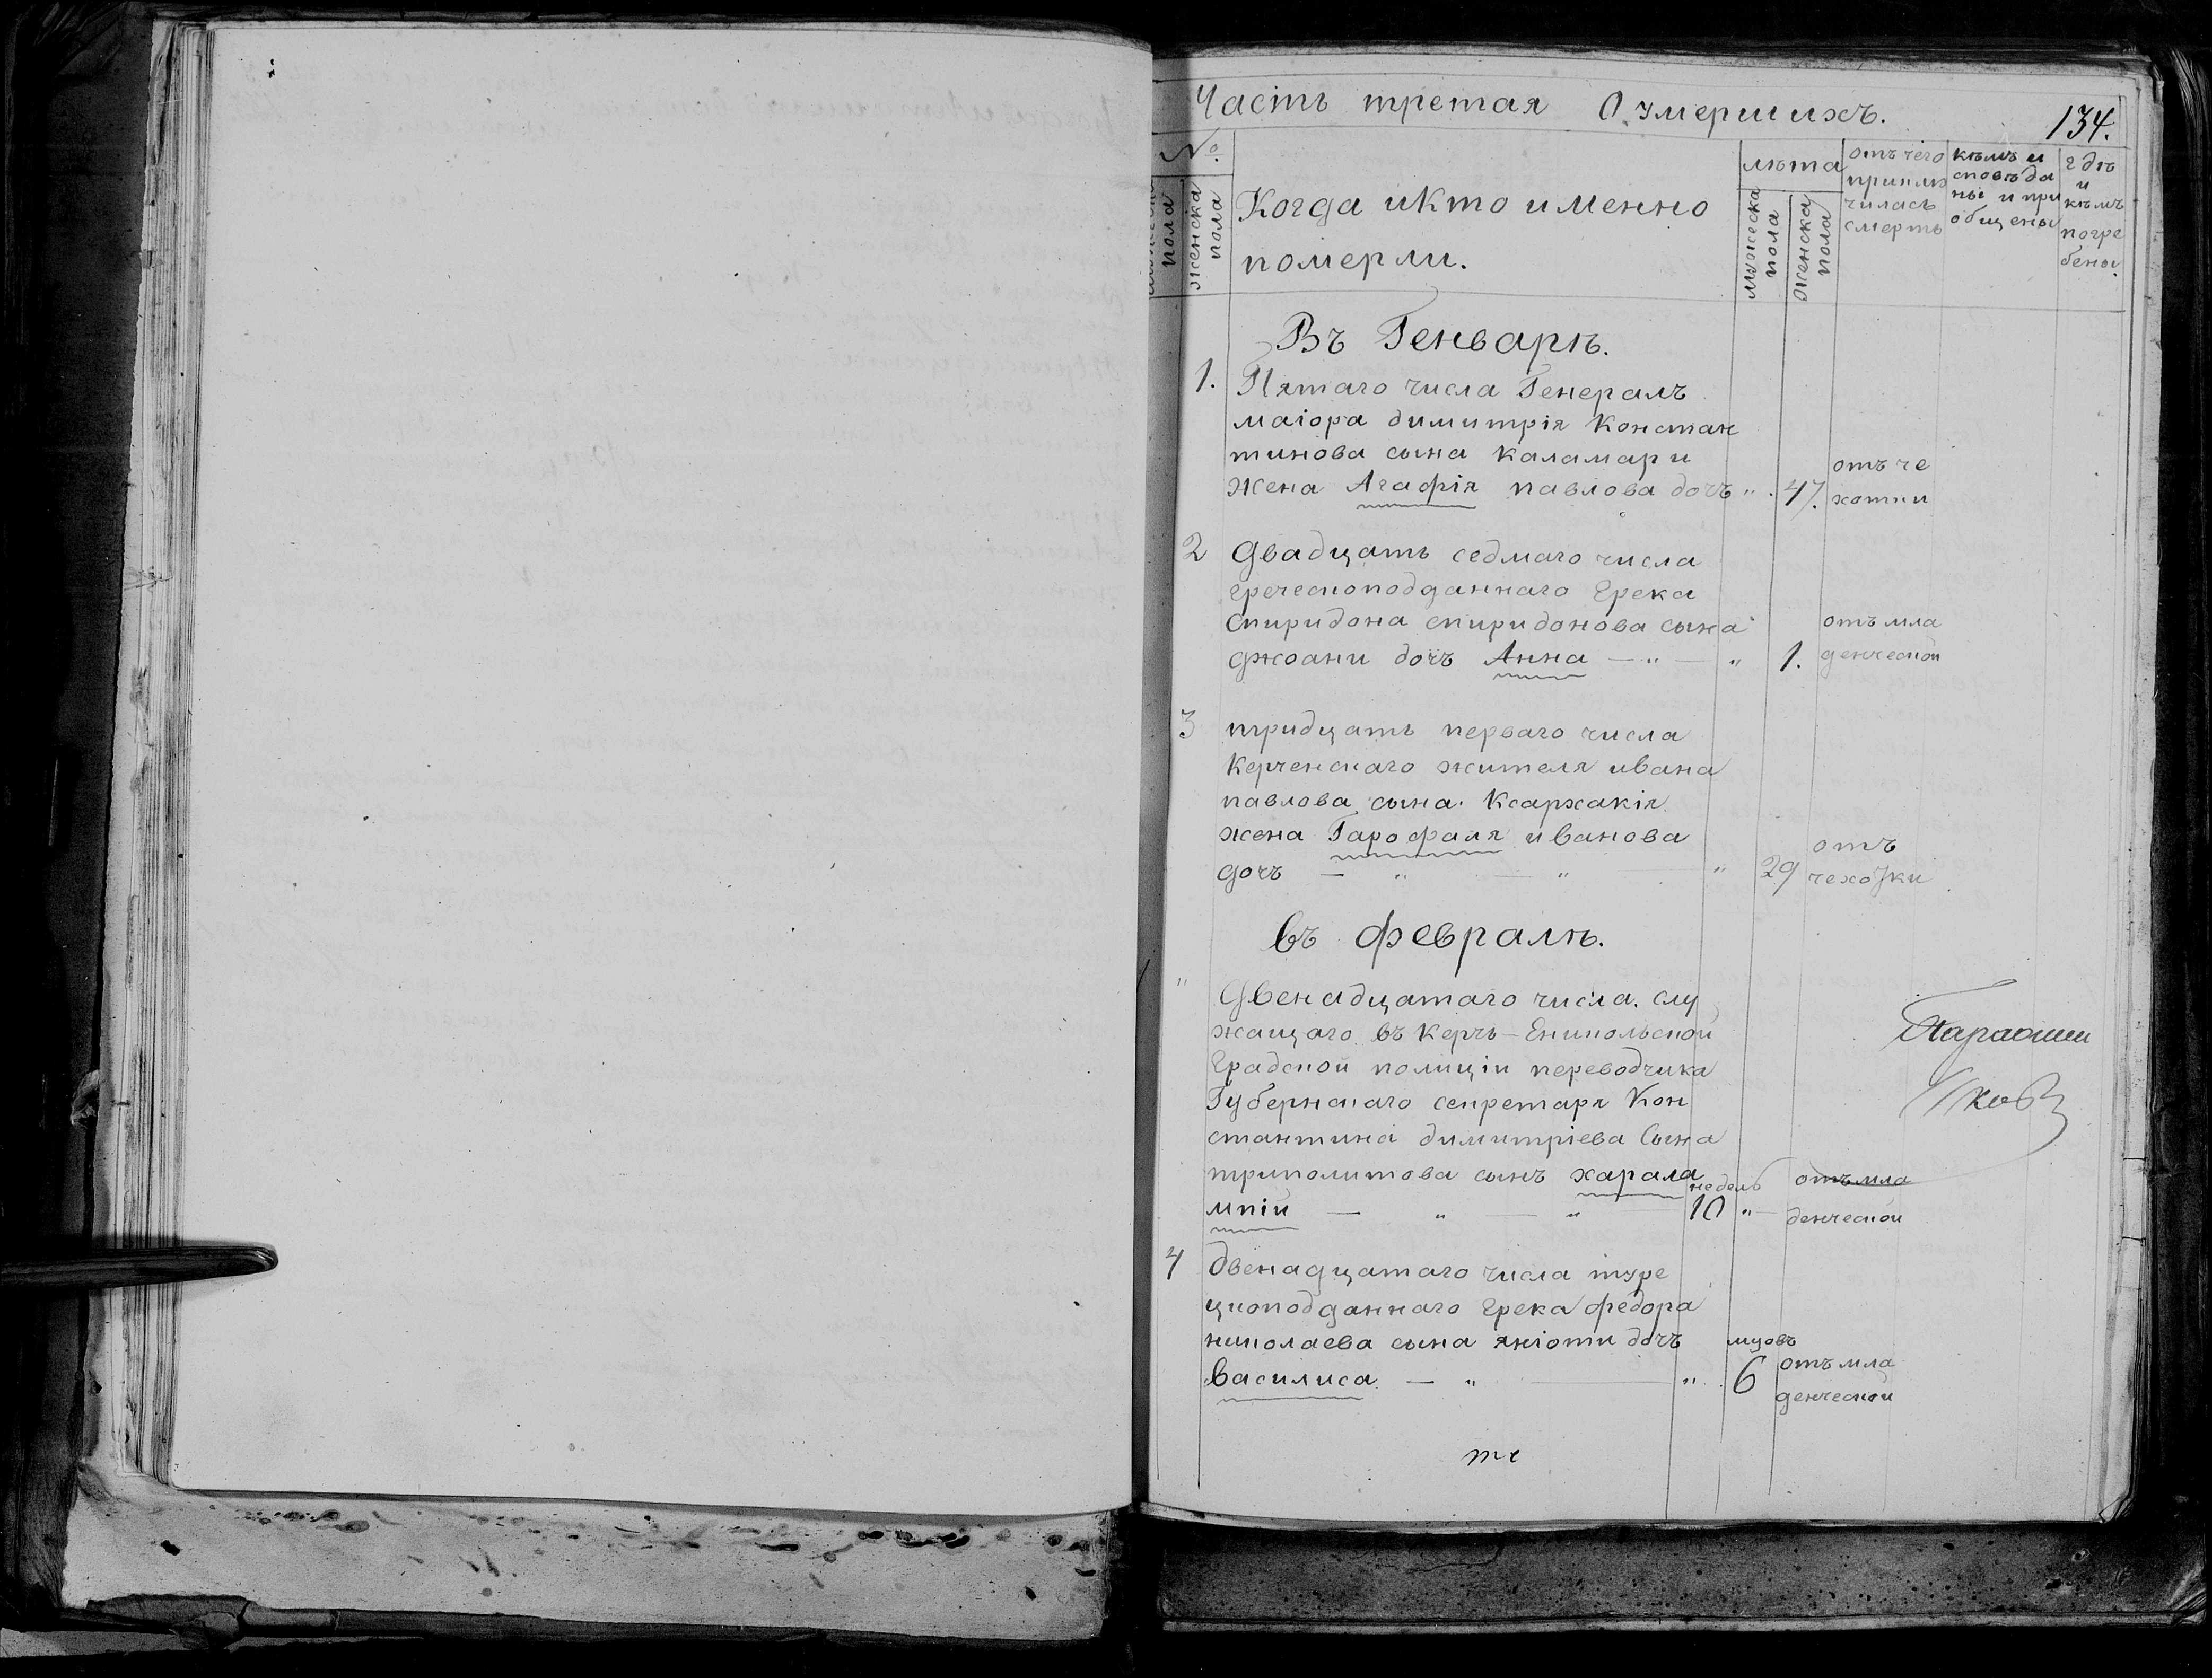 Часть третая О умершихъ.
134.
№
мужеска пола
женска пола
Когда и кто именно
померли.
лѣта
мужеска пола
женска пола
отъ чего
приклю
чилась
смерть
кѣмъ и
сповѣда
ны и при
общены
гдѣ
и
кѣмъ
погре
бены.
Въ Генварѣ.
1. Пятаго числа Генералъ
маіора димитрія Констан
тинова сына каламари
жена Агафія павлова дочъ " 47. отъ че
хотки
2 Двадцать седмаго числа
греческоподданнаго Грека
Спиридона спиридонова сына
джоани дочъ Анна — " — " 1. отъ мла
денческой
3 тридцать перваго числа
Керченскаго жителя ивана
павлова сына. Ксархакія
жена Гарофаля иванова
дочъ — " — " — " 29 отъ
чехотки
въ февралѣ.
" Двенадцатаго числа. слу
жащаго въ Керчъ-Еникольской
Градской полиціи переводчика
Губернскаго секретаря Кон
стантина димитріева Сына
триполитова сынъ харала
мпій — " — " — недель 10 " — отъ мла
денческой
4 двенадцатаго числа туре
цкоподданнаго Грека федора
николаева сына якіоти дочъ
василиса — " — " мцовъ 6 отъ мла
денческой